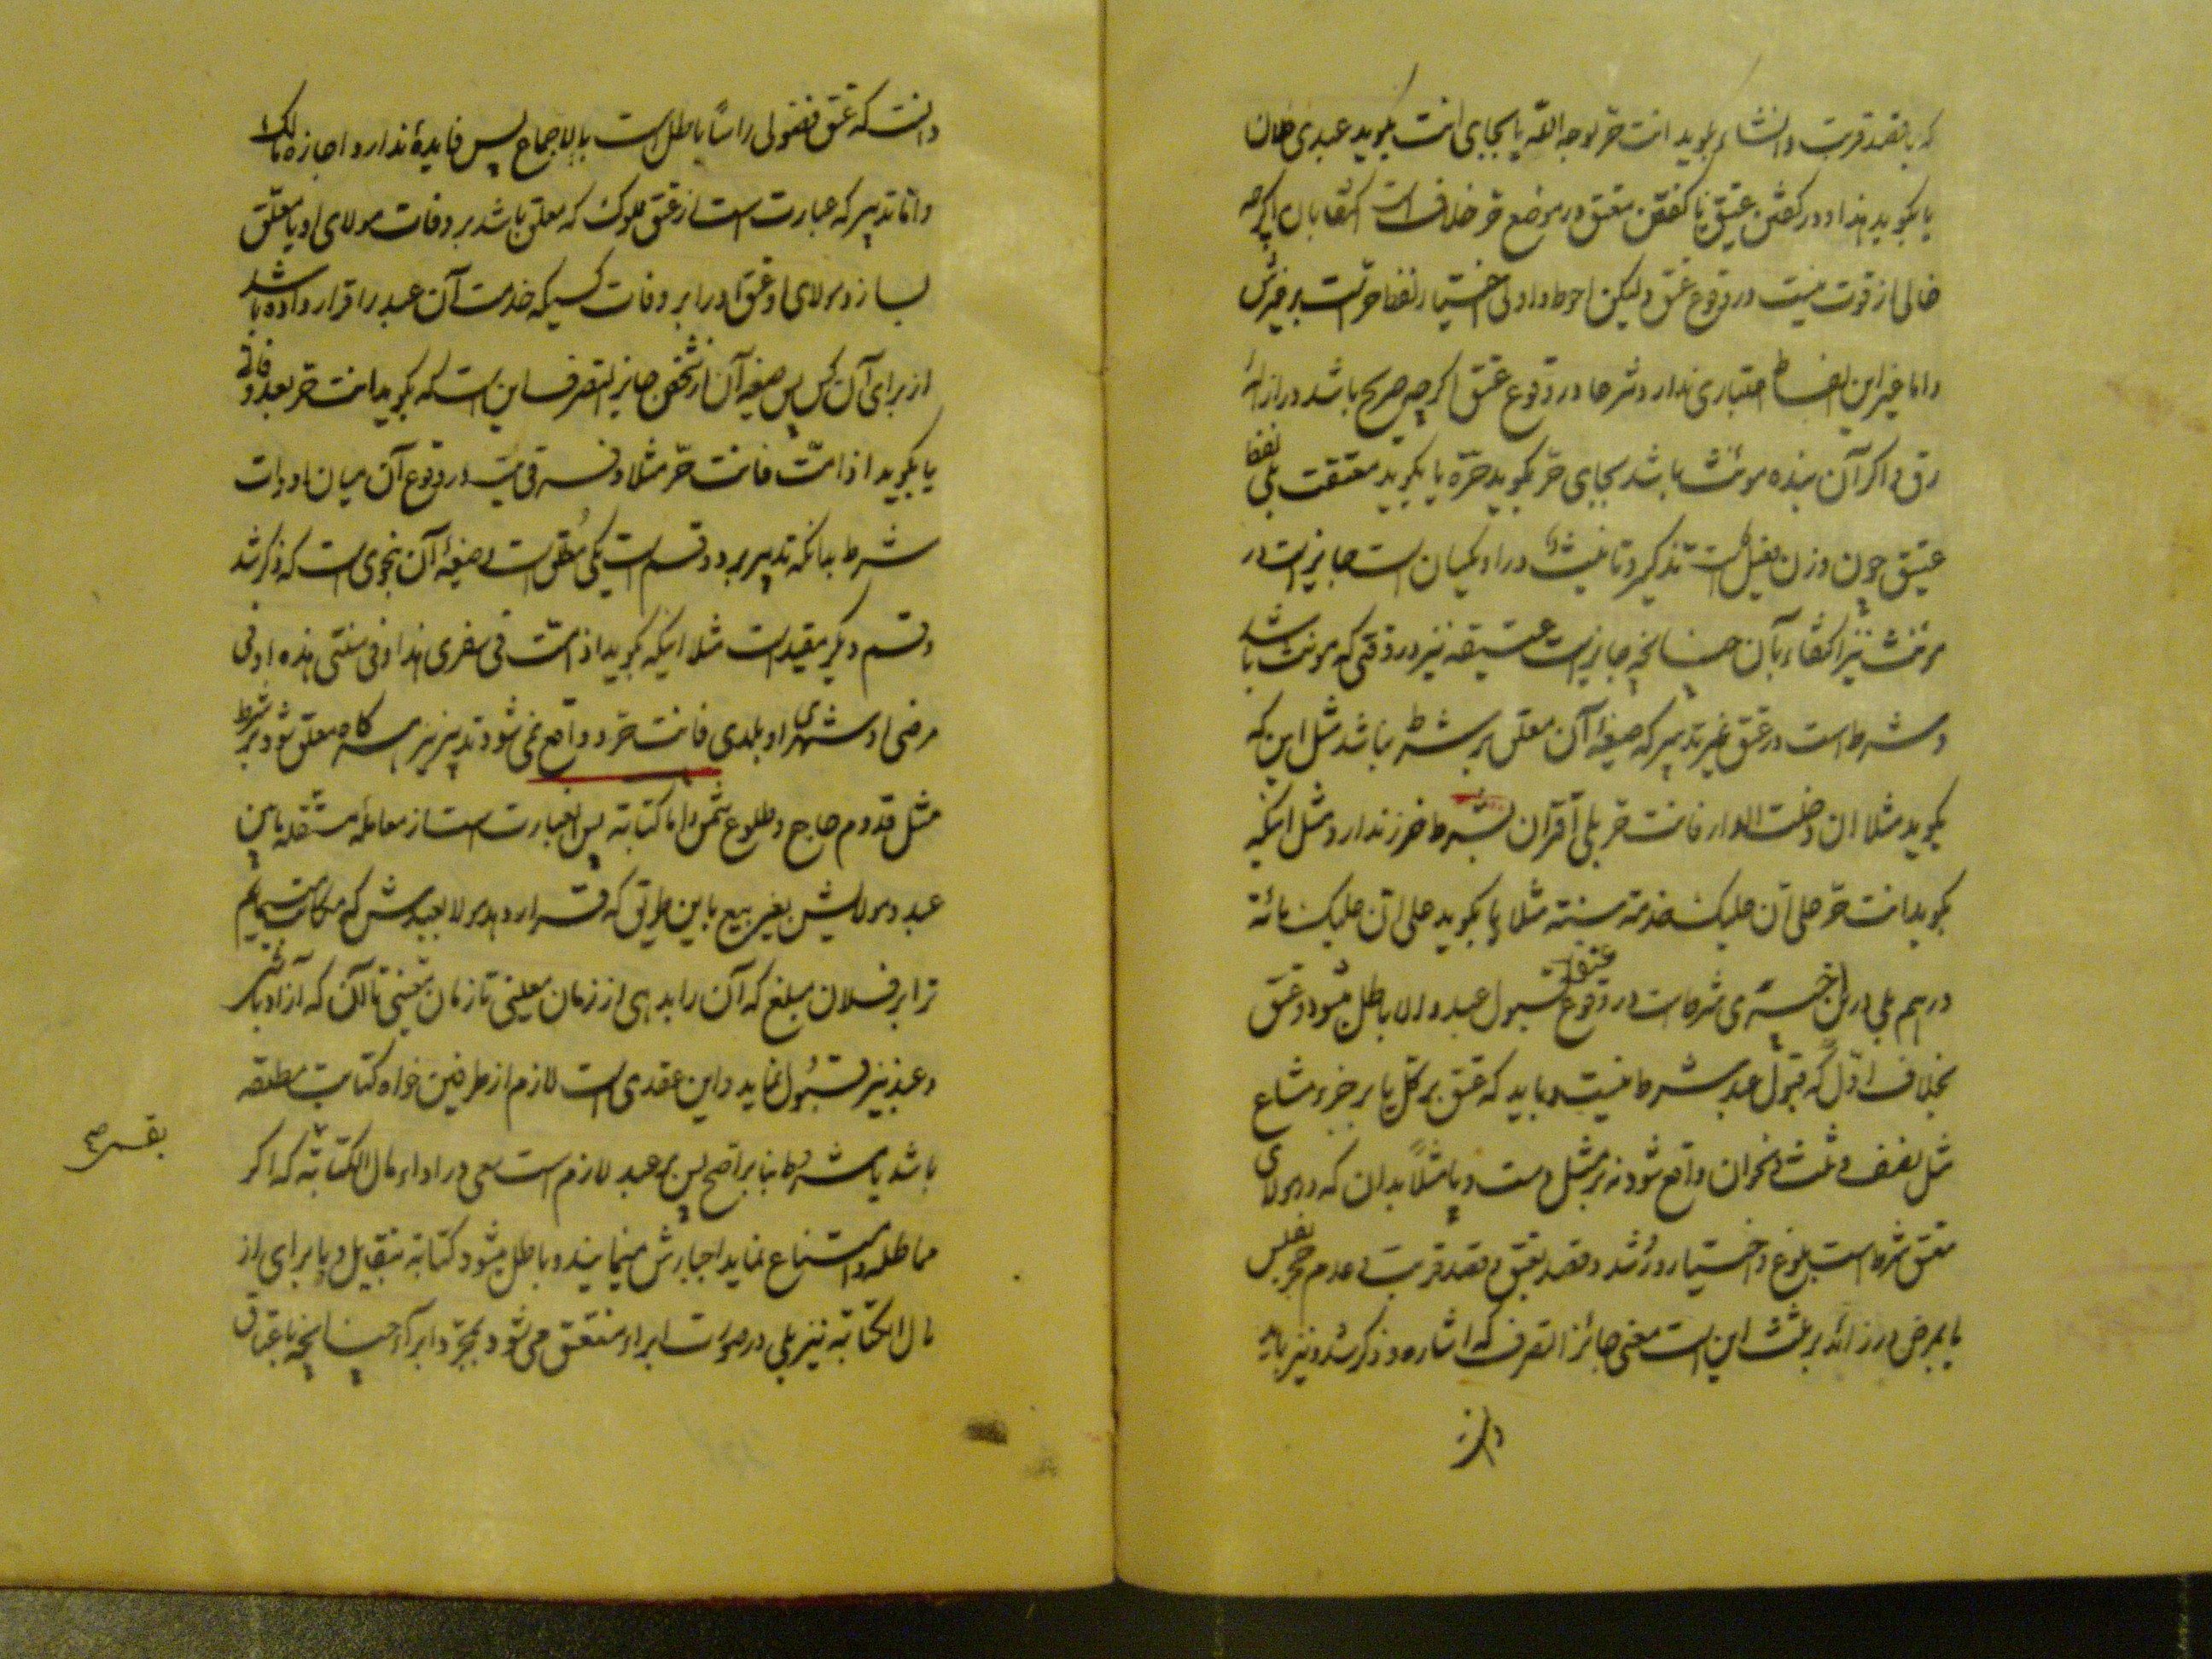 که با قصد قربت و انشاء بگوید انت حر لوجه الله یا بجای انت بگوید عبدی فلان
یا بگوید هذا و در گفتن عتیق یا گفتن معتق در موضع حر خلاف است اکتفا بآن اگرچه
خالی از قوت نیست در وقوع عتق ولیکن احوط و اولی اختیار لفظ حر است بر غیرش
و اما غیر این الفاظ اعتباری ندارد شرعا در وقوع عتق اگرچه صریح باشد در ازاله
رق و اگر آن بنده مونث باشد بجای حر بگوید حرة یا بگوید معتقت بلی لفظ
عتیق چون وزن فعیل است تذکیر و تانیث در او یکسان است جایز است در
مونث نیز اکتفاء بآن چنانچه جایز است عتیقه نیز در وقتی که مونث باشد
و شرط است در عتق غیر تدبیر که صیغهٔ آن معلق بر شرط نباشد مثل این که
بگوید مثلا ان دخلت الدار فانت حر بلی اقتران بشرط ضرر ندارد مثل اینکه
بگوید انت حر علی ان علیک خدمة سنة مثلا یا بگوید علی ان علیک مائة
درهم بلی در این اخیری شرط است در وقوع عتق قبول عبد و الا باطل میشود عتق
بخلاف اول که قبول عبد شرط نیست و باید که عتق بر کل یا بر جزء مشاع
مثل نصف و ثلث و نحو آن واقع شود نه بر مثل دست و پا مثلاً بدان که در مولای
معتق شرط است بلوغ و اختیار و رُشد و قصد بعتق و قصد قربت و عدم حجر بفلس
یا بمرض در زائد بر ثلث این است معنی جائز التصرف که اشاره و ذکر شد و نیز باید
دانست
دانست که عتق فضولی راساً باطل است بالاجماع پس فایدهٔ ندارد اجازه مالک
و اما تدبیر که عبارت است از عتق مملوک که معلق باشد بر وفات مولای او یا معلق
بسازد مولای او عتق او را بر وفات کسیکه خدمت آن عبد را قرار داده باشد
از برای آن کس پس صیغهٔ آن از شخص جایز التصرف این است که بگوید انت حر بعد وفاتی
یا بگوید اذا متّ فانت حرّ مثلا و فرقی نیست در وقوع آن میان ادوات
شرط بدانکه تدبیر بر دو قسم است یکی مُطلق است و صیغهٔ آن بنحوی است که ذکر شد
و قسم دیگر مقید است مثلا اینکه بگوید اذا متّ فی سفری هذا او فی سنتی هذه او فی
مرضی او شهری او بلدی فانت حرّ و واقع نمی شود تدبیر نیز هرگاه معلق شود بر شرط
مثل قدوم حاج و طلوع شمس و اما کتابة پس عبارت است از معامله مستقله مابین
عبد و مولایش بغیر بیع باین طریق که قرار دهد مولا بعبدش که مکاتب میسازم
ترا بر فلان مبلغ که آن را بدهی از زمان معینی تا زمان معینی تا آن که آزاد باشی
و عبد نیز قبُول نماید و این عقدی است لازم از طرفین خواه کتابت مطلقه
باشد یا مشروطه بنا بر اصح پس بر عبد لازم است سعی در اداء مال الکتابة که اگر
بقسمی
مماطله و امتناع نماید اجبارش مینمایند و باطل میشود کتابة بتقایل و یا برای از
مال الکتابة نیز بلی در صورت ابراء منعتق می شود بمجرد ابراء چنانچه باعتاق